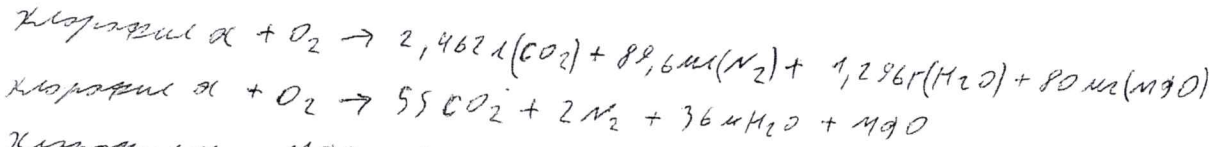 Хлорофилл α + O₂ → 2,462 л(CO₂) + 89,6 мл(N₂) + 1,296 г(H₂O) + 80 мг(MgO)
Хлорофилл α + O₂ → 55 CO₂ + 2N₂ + 36 H₂O + MgO